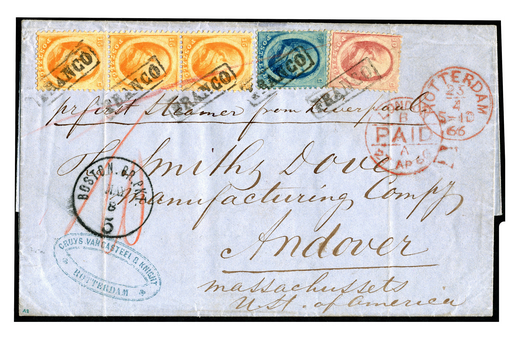 FRANCO FRANCO FRANCO FRANCO FRANCO
per first Steamer from Liverpool
ROTTERDAM
66
PAID
AP 66
The Smith & Dove
Manufacturing Compy
BOSTON. BR. PKT.
MAY
8
Andover
massachussets
U. St. of America
CRUYS VAN CASTEEL & KNIGHT
ROTTERDAM